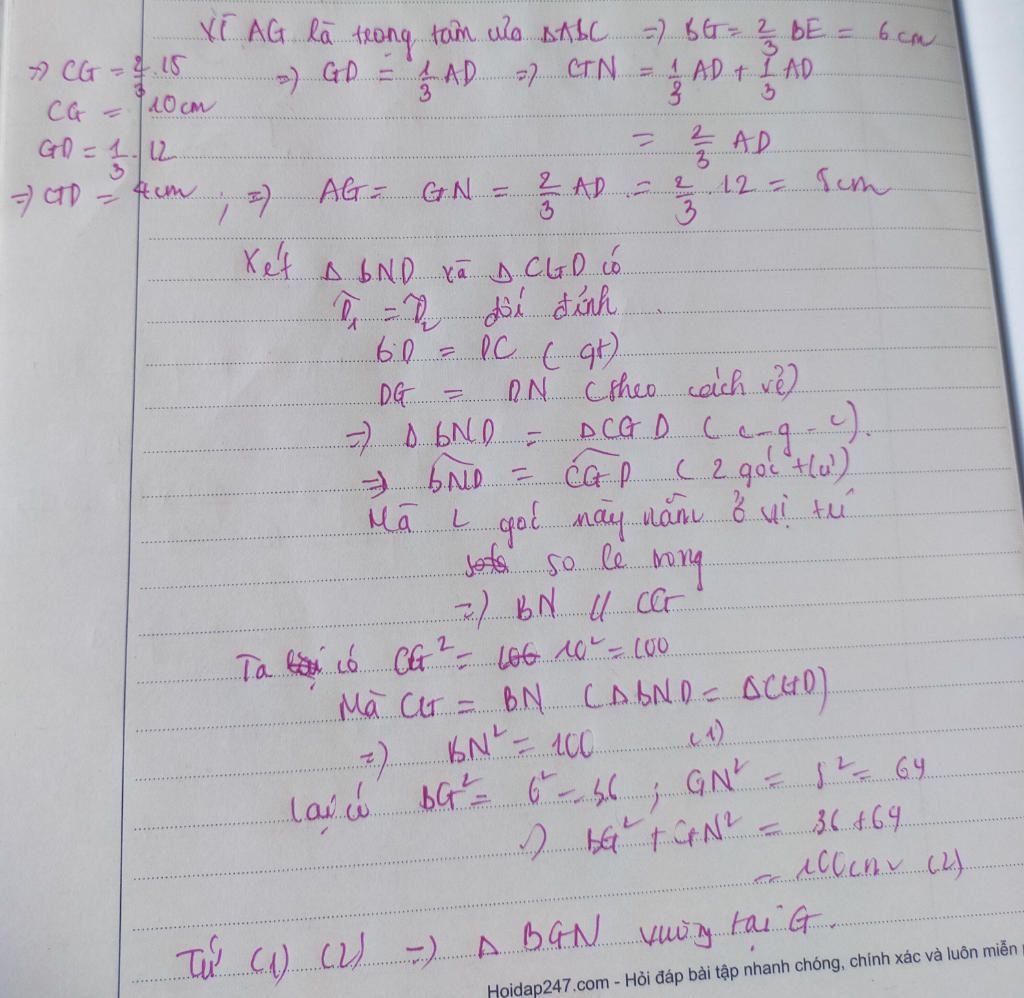 Vì AG là trọng tâm của ΔABC => BG = 2/3 BE = 6cm
=> CG = 2/3 . 15 => GD = 1/3 AD => GN = 1/3 AD + 1/3 AD
CG = 10cm
GD = 1/3 . 12 = 2/3 AD
=> GD = 4cm ; => AG = GN = 2/3 AD = 2/3 . 12 = 8cm
Xét Δ BND và Δ CGD có
D̂₁ = D̂₂ đối đỉnh
BD = DC ( gt )
DG = DN ( theo cách vẽ )
=> Δ BND = ΔCGD ( c - g - c ).
=> BND = CGD ( 2 góc t/ứ )
Mà 2 góc này nằm ở vị trí
so le trong
=> BN // CG
Ta có CG² = 10² = 100
Mà CG = BN ( Δ BND = ΔCGD )
=> BN² = 100 (1)
lại có BG² = 6² = 36 ; GN² = 8² = 64
=> BG² + GN² = 36 + 64
= 100cm (2)
Từ (1) (2) => Δ BGN vuông tại G.
Hoidap247.com - Hỏi đáp bài tập nhanh chóng, chính xác và luôn miễn